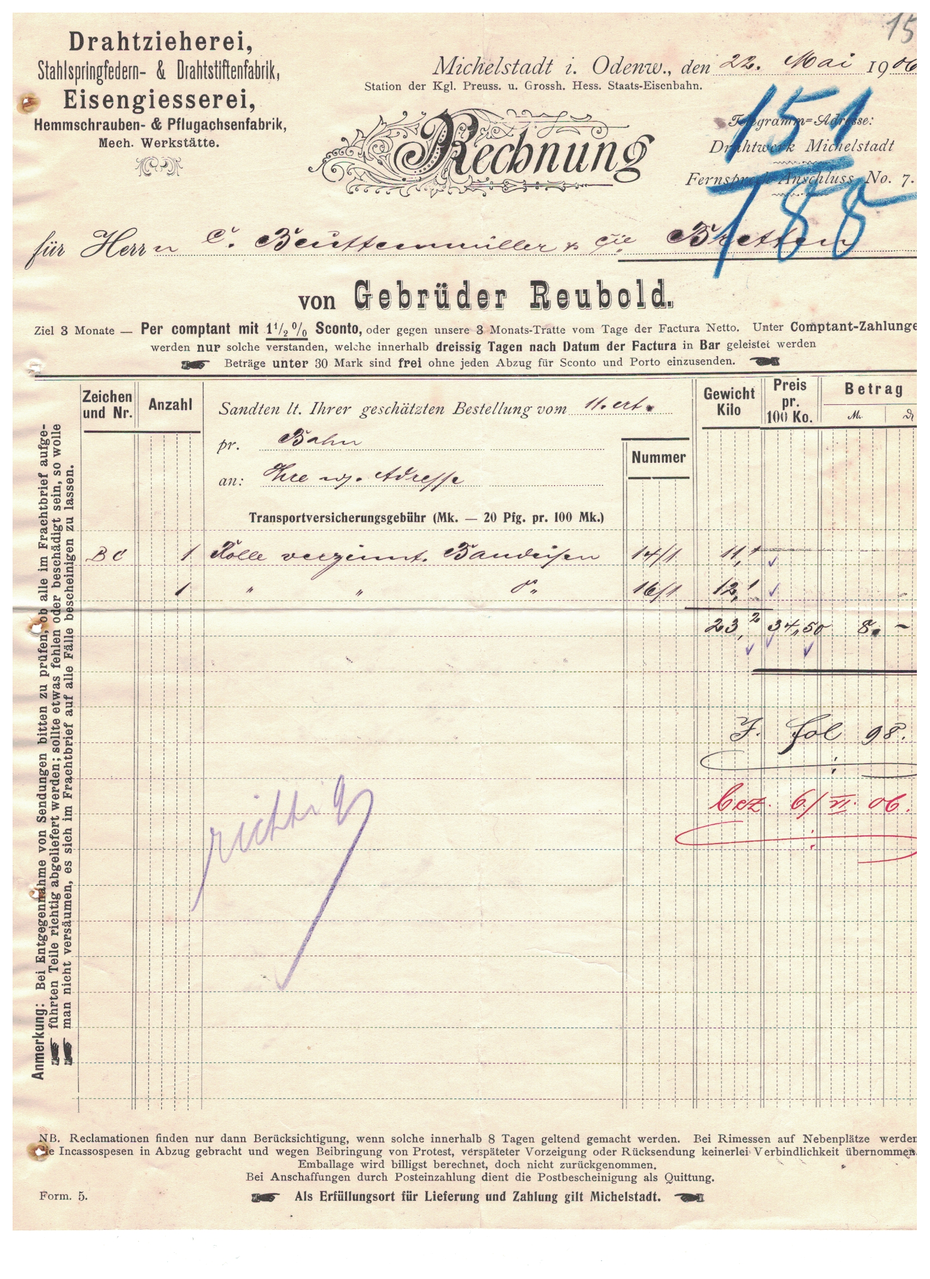 15
Drahtzieherei,
Stahlspringfedern- & Drahtstiftenfabrik,
Eisengiesserei,
Hemmschrauben- & Pflugachsenfabrik,
Mech. Werkstätte.
Michelstadt i. Odenw., den 22. Mai 1906
Station der Kgl. Preuss. u. Grossh. Hess. Staats-Eisenbahn.
Rechnung
Telegramm-Adresse:
Drahtwerk Michelstadt
Fernsprech-Anschluss No. 7.
151
188
für Herrn C. Beuttenmüller & Cie. Bretten
von Gebrüder Reubold.
Ziel 3 Monate — Per comptant mit 1½% Sconto, oder gegen unsere 3 Monats-Tratte vom Tage der Factura Netto. Unter Comptant-Zahlunge
werden nur solche verstanden, welche innerhalb dreissig Tagen nach Datum der Factura in Bar geleistet werden
Beträge unter 30 Mark sind frei ohne jeden Abzug für Sconto und Porto einzusenden.
Zeichen und Nr.
Anzahl
Sandten lt. Ihrer geschätzten Bestellung vom 11. crt.
pr. Bahn
an: Ihre w. Adresse
Transportversicherungsgebühr (Mk. — 20 Pfg. pr. 100 Mk.)
Nummer
Gewicht Kilo
Preis pr. 100 Ko.
Betrag
M.
BC 1 Rolle verzinnt. Bandeisen 14/1 11,1
1 " " do. 16/1 12,1
23,2 34,50 8. -
J. fol 98.
bez. 6/VI. 06.
richtig
Anmerkung: Bei Entgegennahme von Sendungen bitten zu prüfen, ob alle im Frachtbrief aufge-
führten Teile richtig abgeliefert werden; sollte etwas fehlen oder beschädigt sein, so wolle
man nicht versäumen, es sich im Frachtbrief auf alle Fälle bescheinigen zu lassen.
NB. Reclamationen finden nur dann Berücksichtigung, wenn solche innerhalb 8 Tagen geltend gemacht werden. Bei Rimessen auf Nebenplätze werden
die Incassospesen in Abzug gebracht und wegen Beibringung von Protest, verspäteter Vorzeigung oder Rücksendung keinerlei Verbindlichkeit übernommen.
Emballage wird billigst berechnet, doch nicht zurückgenommen.
Bei Anschaffungen durch Posteinzahlung dient die Postbescheinigung als Quittung.
Form. 5.
Als Erfüllungsort für Lieferung und Zahlung gilt Michelstadt.